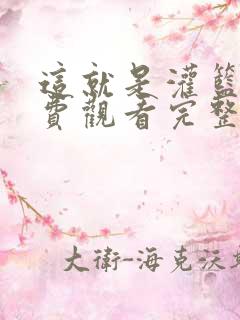 這就是灌籃
費觀看完整
大衛-海克沃